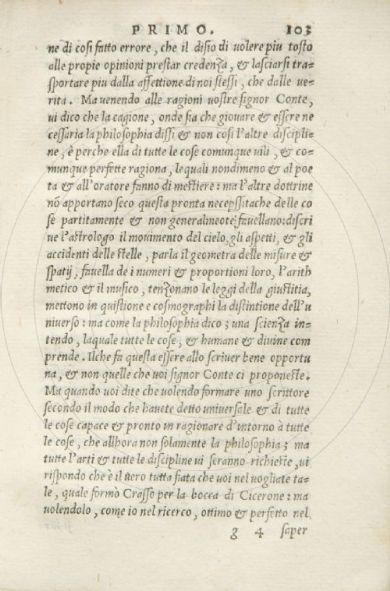 PRIMO. 103
ne di cosi fatto errore, che il disio di uolere piu tosto
alle propie opinioni prestar credenza, & lasciarsi tra-
sportare piu dalla affettione di noi stessi, che dalle ue-
rita. Ma uenendo alle ragioni uostre signor Conte,
ui dico che la cagione, onde sia che giouare & essere ne
cessaria la philosophia dissi & non cosi l'altre discipli-
ne, è perche ella di tutte le cose comunque uili, & co-
munque perfette ragiona, le quali nondimeno & al poe
ta & all'oratore fanno di mestiere: ma l'altre dottrine
nō apportano seco questa pronta necessita che delle co
se partitamente & non generalmeote fauellano: discri
ue l'astrologo il mouimento del cielo, gli aspetti, & gli
accidenti delle stelle, parla il geometra delle misure &
spatij, fauella de i numeri & proportioni loro, l'arith
metico & il musico, tenzonano le leggi della giustitia,
mettono in quistione e cosmographi la distintione dell'u
niuerso: ma come la philosophia dico; una scienza in-
tendo, laquale tutte le cose, & humane & diuine com
prende. Ilche fa questa essere allo scriuer bene opportu
na, & non quelle che uoi signor Conte ci proponeste.
Ma quando uoi dite che uolendo formare uno scrittore
secondo il modo che hauete detto uniuersale & di tutte
le cose capace & pronto in ragionare d'intorno à tutte
le cose, che allhora non solamente la philosophia; ma
tutte l'arti & tutte le discipline ui seranno richieste, ui
rispondo che è il uero tutta fiata che uoi nel uogliate ta-
le, quale formò Crasso per la bocca di Cicerone: ma
uolendolo, come io nel ricerco, ottimo & perfetto nel
g 4 saper